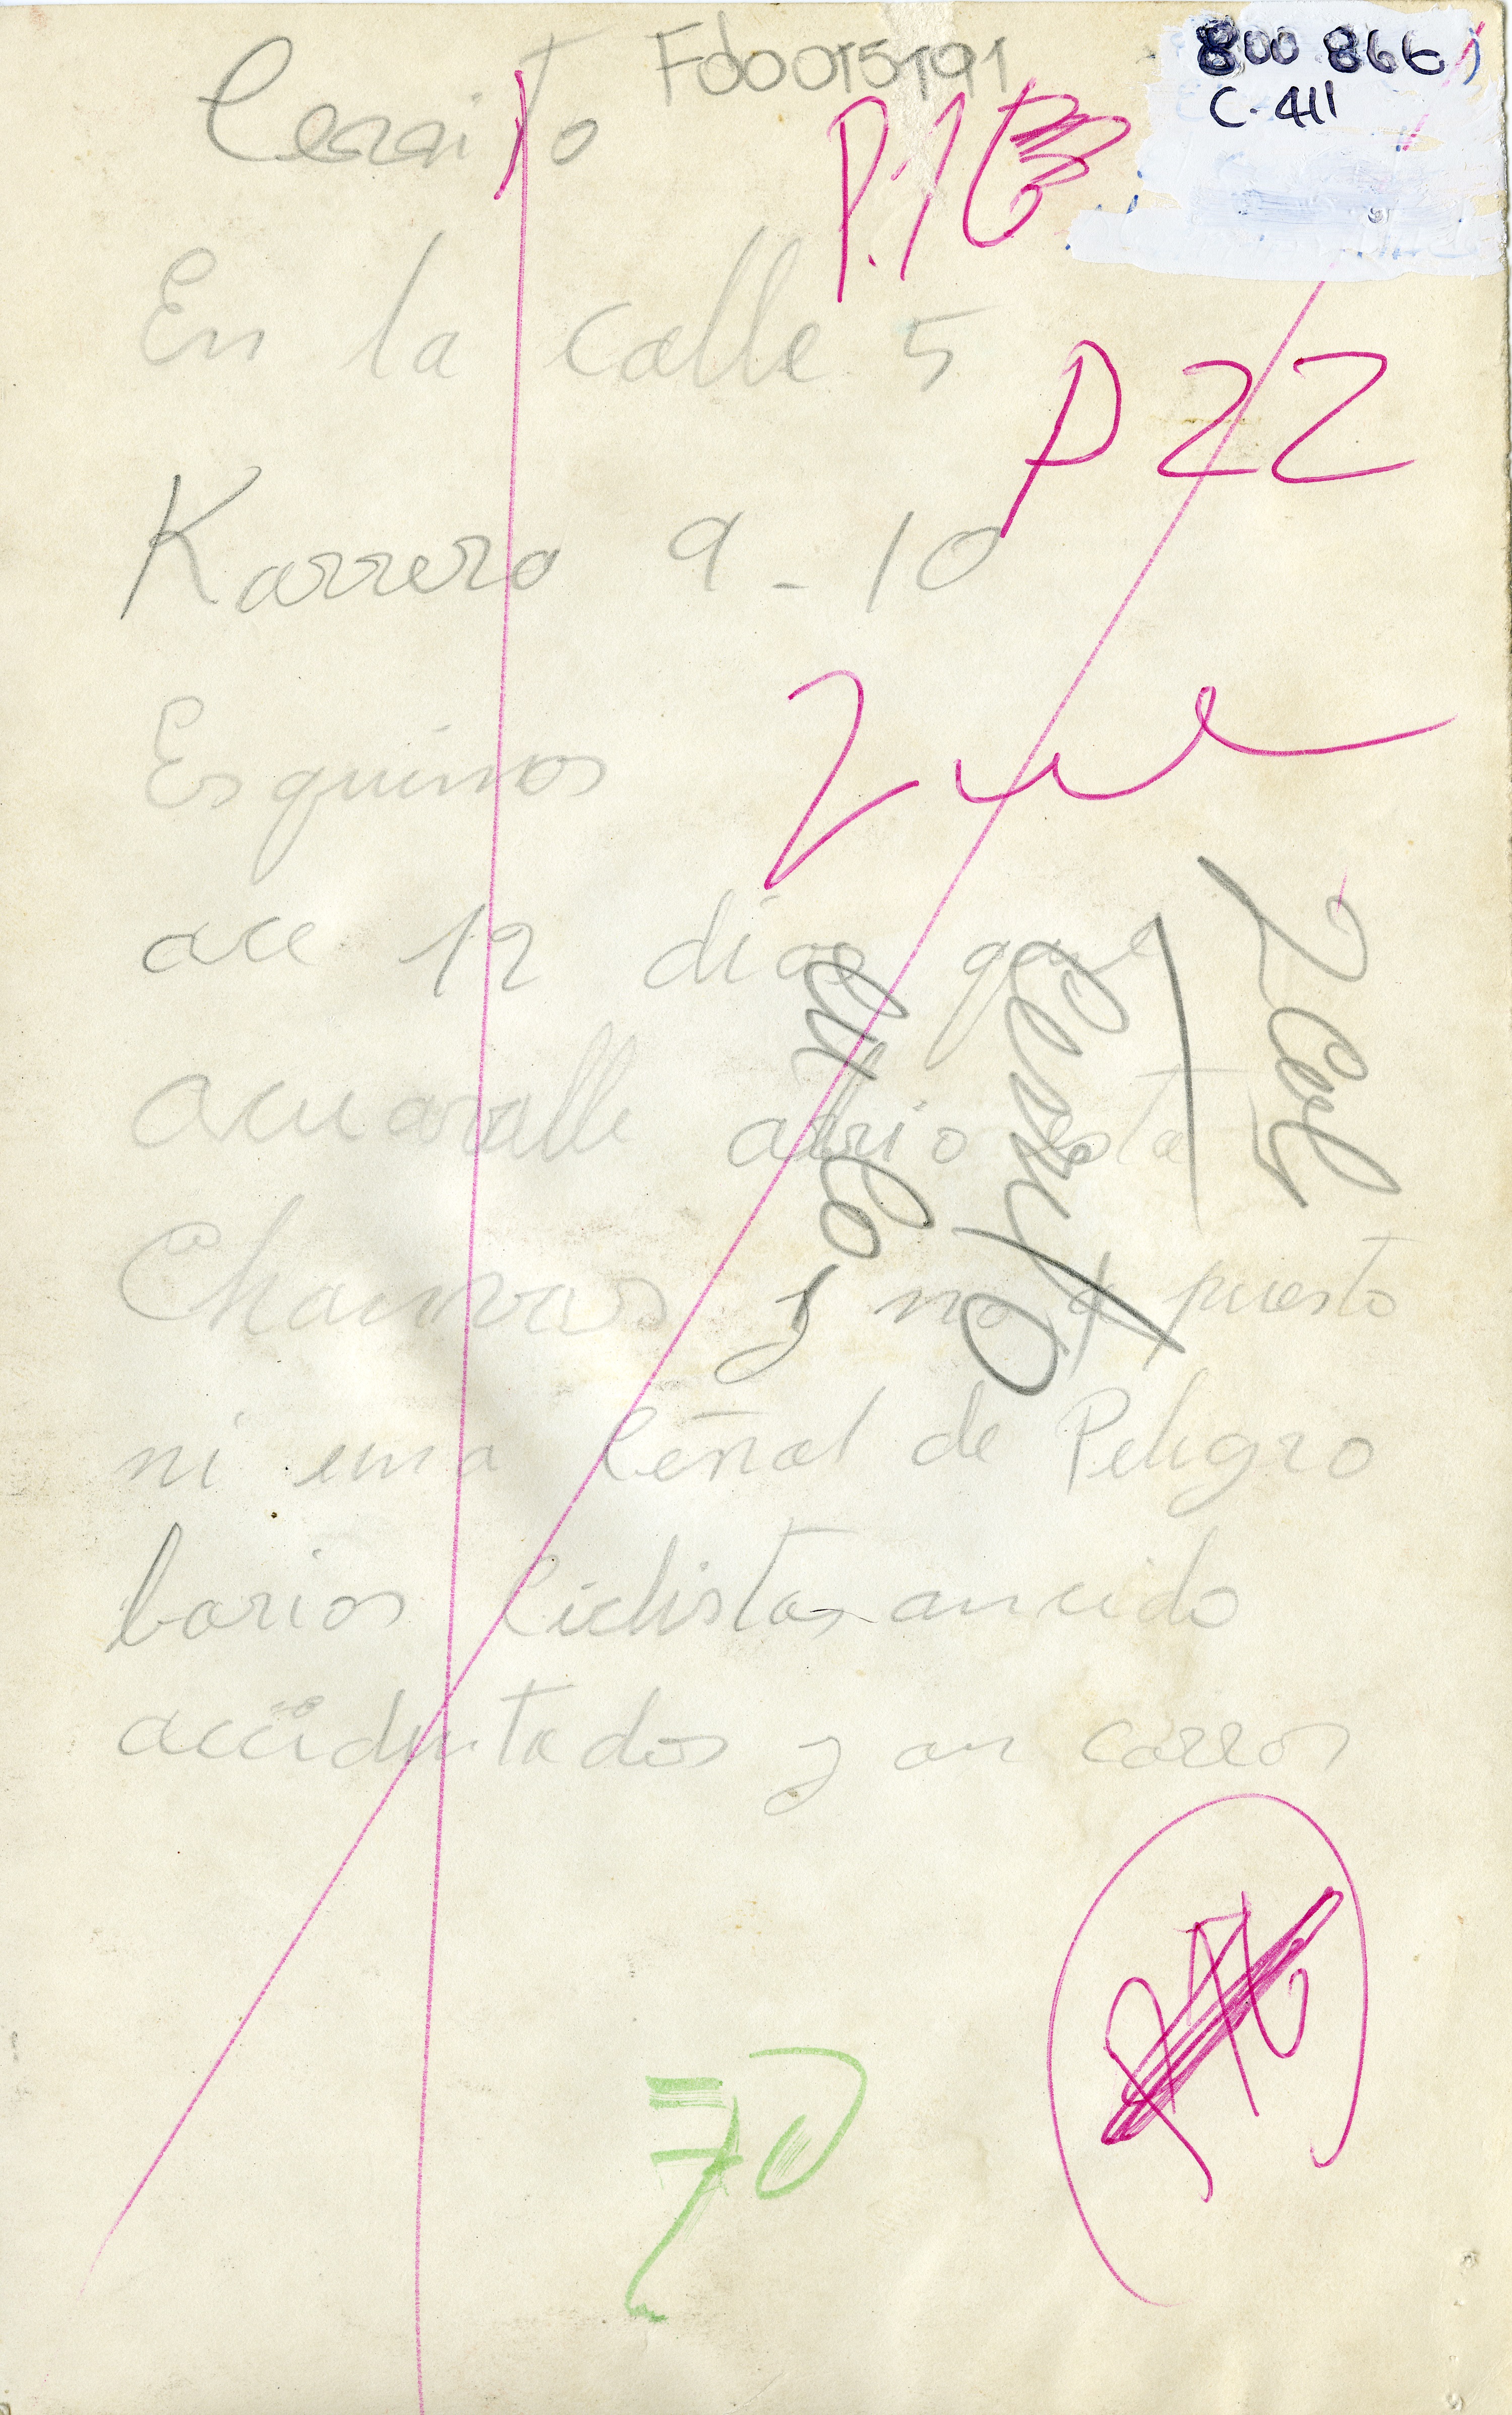 Cerrito
Fdo0015191
800 866
C-411
P.16
En la calle 5
P 22
Karrera 9-10
Esquinos
2 Col
ace 12 dias que
Cerrito
acuavalle abrio esta
Chamvas y no a puesto
ni una Señal de Peligro
barios Ciclistas an cido
accidentados y an carros
70